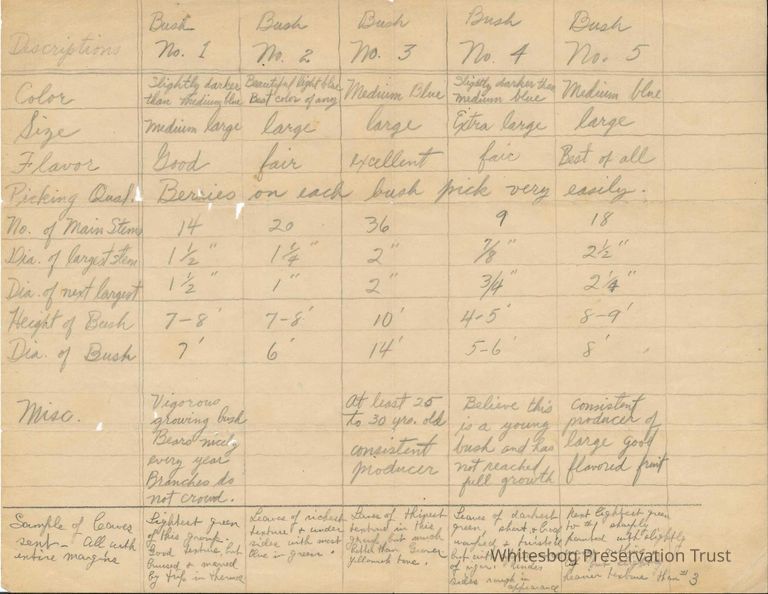 Descriptions Bush No. 1 Bush No. 2 Bush No. 3 Bush No. 4 Bush No. 5
Color Slightly darker than medium blue Beautiful light blue Best color of any Medium Blue Slightly darker than medium blue Medium blue
Size Medium large large large Extra large large
Flavor Good fair excellent fair Best of all
Picking Qual. Berries on each bush pick very easily.
No. of Main Stems 14 20 36 9 18
Dia. of largest stem 1 1/2" 1 1/4" 2" 7/8" 2 1/2"
Dia. of next largest 1 1/2" 1" 2" 3/4" 2 1/4"
Height of Bush 7-8' 7-8' 10' 4-5' 8-9'
Dia. of Bush 7' 6' 14' 5-6' 8'
Misc.
Vigorous
growing bush
Bears nicely
every year
Branches do
not crowd.
At least 25
to 30 yrs. old
consistent
producer
Believe this
is a young
bush and has
not reached
full growth
Consistent
producer of
large good
flavored fruit
Sample of leaves
sent - All with
entire margins
Lightest green
of this group.
Good texture, but
bruised & marred
by trip in thermos
Leaves of richest
texture & under
sides with most
blue in green.
Leaves of thinnest
texture in this
group but much
better than
yellowish tone.
Leaves of darkest
green
under
sides rough in
appearance
Next lightest green
to #1 sharply
pointed with slightly
heavier texture than #3
Whitesbog Preservation Trust